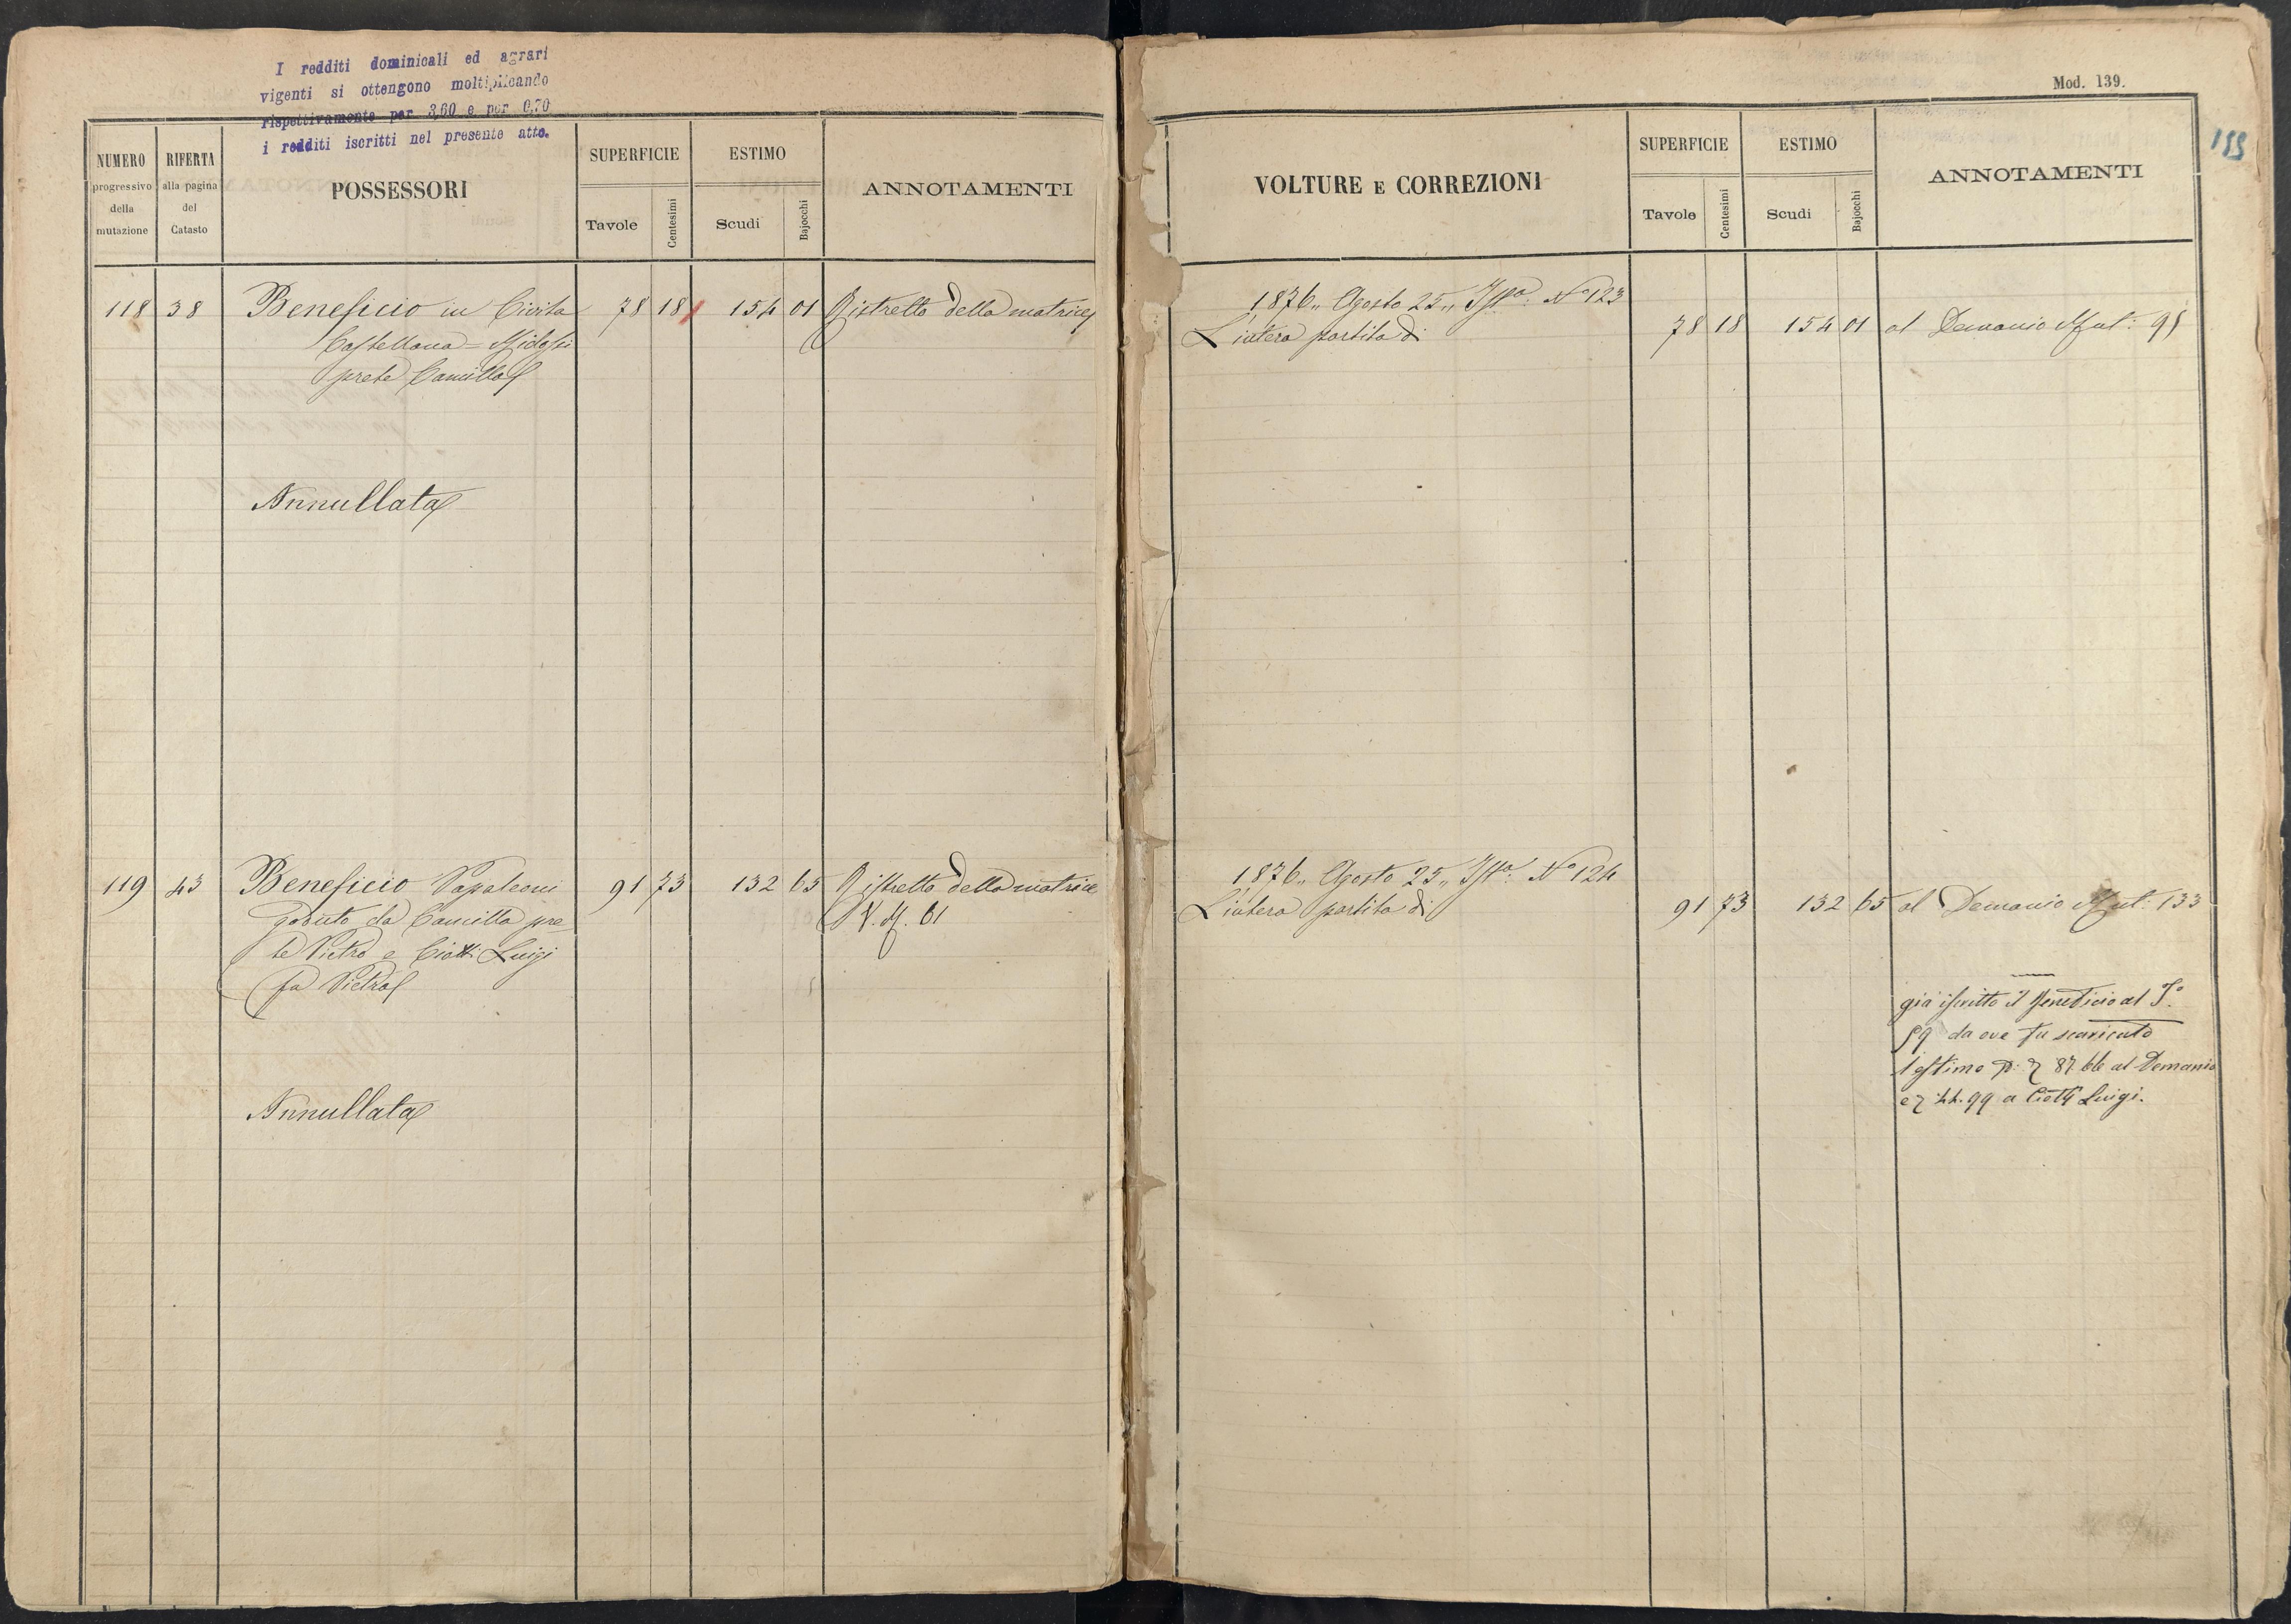 I redditi dominicali ed agrari
vigenti si ottengono moltiplicando
rispettivamente per 3,60 e per 0,70
i redditi iscritti nel presente atto.
NUMERO
progressivo
della
mutazione
RIFERTA
alla pagina
del
Catasto
POSSESSORI
SUPERFICIE
Tavole
Centesimi
ESTIMO
Scudi
Bajocchi
ANNOTAMENTI
118 38 Beneficio in Civita 78 18 154 01 Ristretto della matrice
Castellana = Midossi
prete Camillo
Annullata
119 43 Beneficio Papaleoni 91 73 132 65 Ristretto della matrice
goduto da Camilla pre= V. M. 61
te Pietro e Ciotti Luigi
fu Pietro
Annullata
Mod. 139.
VOLTURE E CORREZIONI
SUPERFICIE
Tavole
Centesimi
ESTIMO
Scudi
Bajocchi
ANNOTAMENTI
1876 „ Agosto 25 „ Istza. No 123
L'intera partita di 78 18 154 01 al Demanio Mut:
1876 „ Agosto 25 „ Istza. No 124
L'intera partita di 91 73 132 65 al Demanio Mut: 133
già iscritto il Beneficio al
59 da ove fu scaricato
l'estimo 87.66 al Demanio
e 44.99 a Ciotti Luigi.